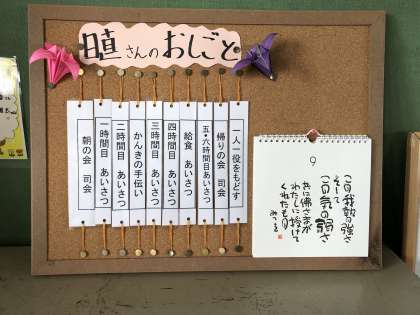 日直さんのおしごと
一人一役をもどす
帰りの会　司会
五・六時間目あいさつ
給食　あいさつ
四時間目　あいさつ
三時間目　あいさつ
かんきの手伝い
二時間目　あいさつ
一時間目　あいさつ
朝の会　司会
9
この我執の強さ
そして
この気の弱さ
共に佛さまが
わたしに授けて
くれたもの
みつを